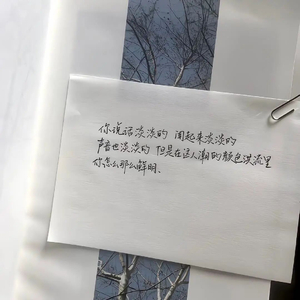 你说话淡淡的 闻起来淡淡的
声音也淡淡的 但是在这人潮的颜色洪流里
你怎么那么鲜明.